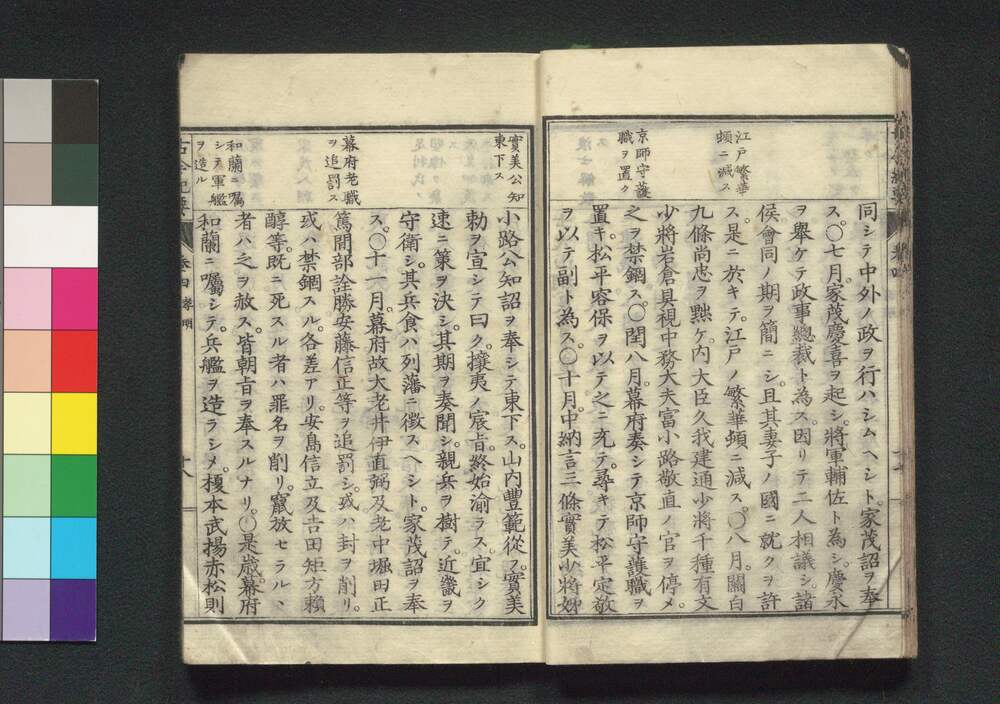 江戸繁華
頓ニ減ス
京師守護
職ヲ置ク
同シテ中外ノ政ヲ行ハシムヘシト。家茂詔ヲ奉
ス。〇七月。家茂慶喜ヲ起シ。將軍輔佐ト為シ。慶永
ヲ舉ケテ政事總裁ト為ス。因リテ二人相議シ。諸
侯會同ノ期ヲ簡ニシ。且其妻子ノ國ニ就クヲ許
ス。是ニ於キテ。江戸ノ繁華頓ニ減ス。〇八月。關白
九條尚忠ヲ黜ケ。内大臣久我建通少將千種有文
少將岩倉具視中務大夫富小路敬直ノ官ヲ停メ。
之ヲ禁錮ス。〇閏八月。幕府奏シテ京師守護職ヲ
置キ。松平容保ヲ以テ之ニ充テ。尋キテ松平定敬
ヲ以テ副ト為ス。〇十月。中納言三條實美少將姉
實美公知
東下ス
幕府老職
ヲ追罰ス
和蘭ニ囑
シテ軍艦
ヲ造ル
小路公知詔ヲ奉シテ東下ス。山内豐範從フ。實美
勅ヲ宣シテ曰ク。攘夷ノ宸旨。終始渝ラス。宜シク
速ニ策ヲ決シ。其期ヲ奏聞シ。親兵ヲ樹テ。近畿ヲ
守衛シ。其兵食ハ列藩ニ徴スヘシト。家茂詔ヲ奉
ス。〇十一月。幕府故大老井伊直弼及老中堀田正
篤間部詮勝安藤信正等ヲ追罰シ。或ハ封ヲ削リ。
或ハ禁錮スル。各差アリ。安島信立及吉田矩方賴
醇等。既ニ死スル者ハ罪名ヲ削リ。竄放セラルヽ
者ハ之ヲ赦ス。皆朝旨ヲ奉スルナリ。〇是歳。幕府
和蘭ニ囑シテ。兵艦ヲ造ラシメ。榎本武揚赤松則